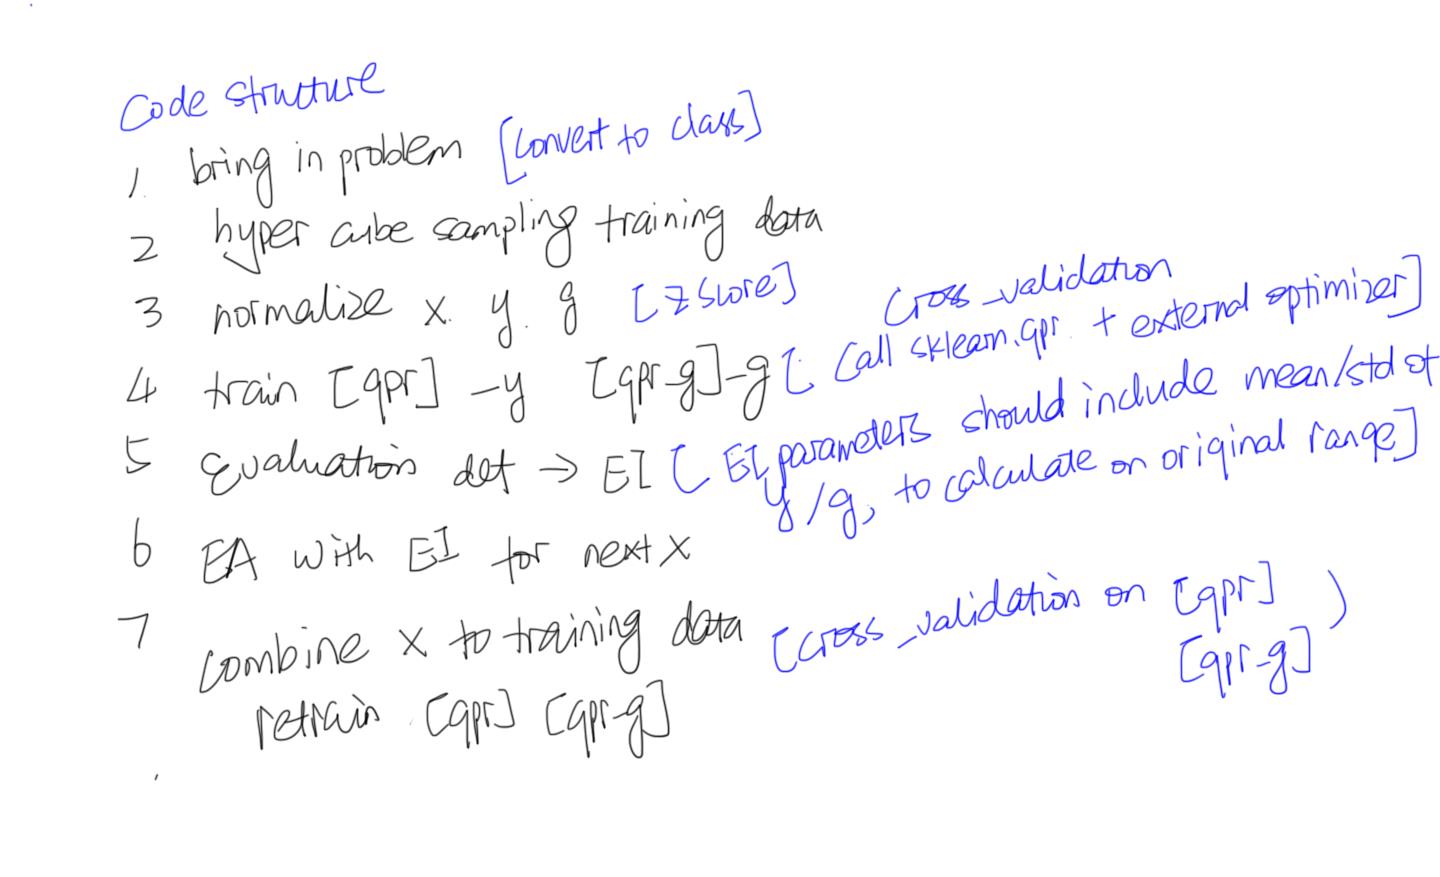 Code structure
1. bring in problem [convert to class]
2 hyper cube sampling training data
3 normalize x. y. g [zscore]
cross_validation
4 train [gpr] -y [gpr-g]-g [call sklearn.gpr + external optimizer]
5 Evaluation def → EI [EI parameters should include mean/std of
y/g, to calculate on original range]
6 EA with EI for next x
7 combine x to training data [cross_validation on [gpr] )
[gpr-g]
retrain [gpr] [gpr-g]